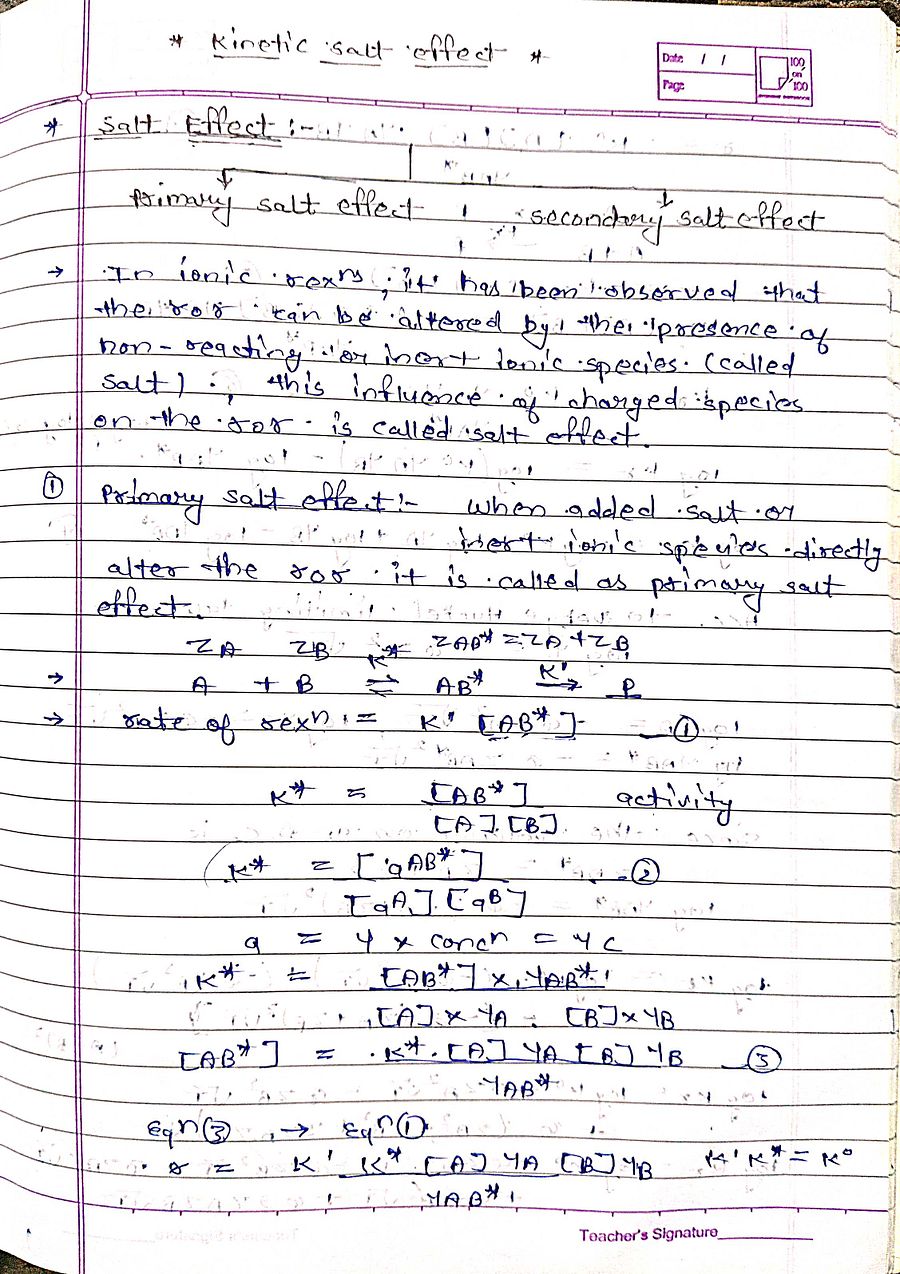 * Kinetic salt effect *
Date / /
Page
100
on
100
* Salt Effect :-
primary salt effect secondary salt effect
→ In ionic rexns, it has been observed that
the ror can be altered by the presence of
non-reacting or inert ionic species (called
salt), this influence of charged species
on the ror is called salt effect.
① Primary salt effect :- when added salt or
inert ionic species directly
alter the ror it is called as primary salt
effect.
ZA ZB K* ZAB* = ZA + ZB
→ A + B ⇌ AB* K' → P
→ rate of rexn = K' [AB*] — ①
K* = [AB*] activity
[A].[B]
K* = [aAB*] — ②
[aA].[aB]
a = γ x concn = γc
K* = [AB*] x γAB*
[A] x γA . [B] x γB
[AB*] = K*.[A] γA [B] γB — ③
γAB*
Eqn ③ → Eqn ①
r = K' K* [A] γA [B] γB K'K* = K°
γAB*
Teacher's Signature